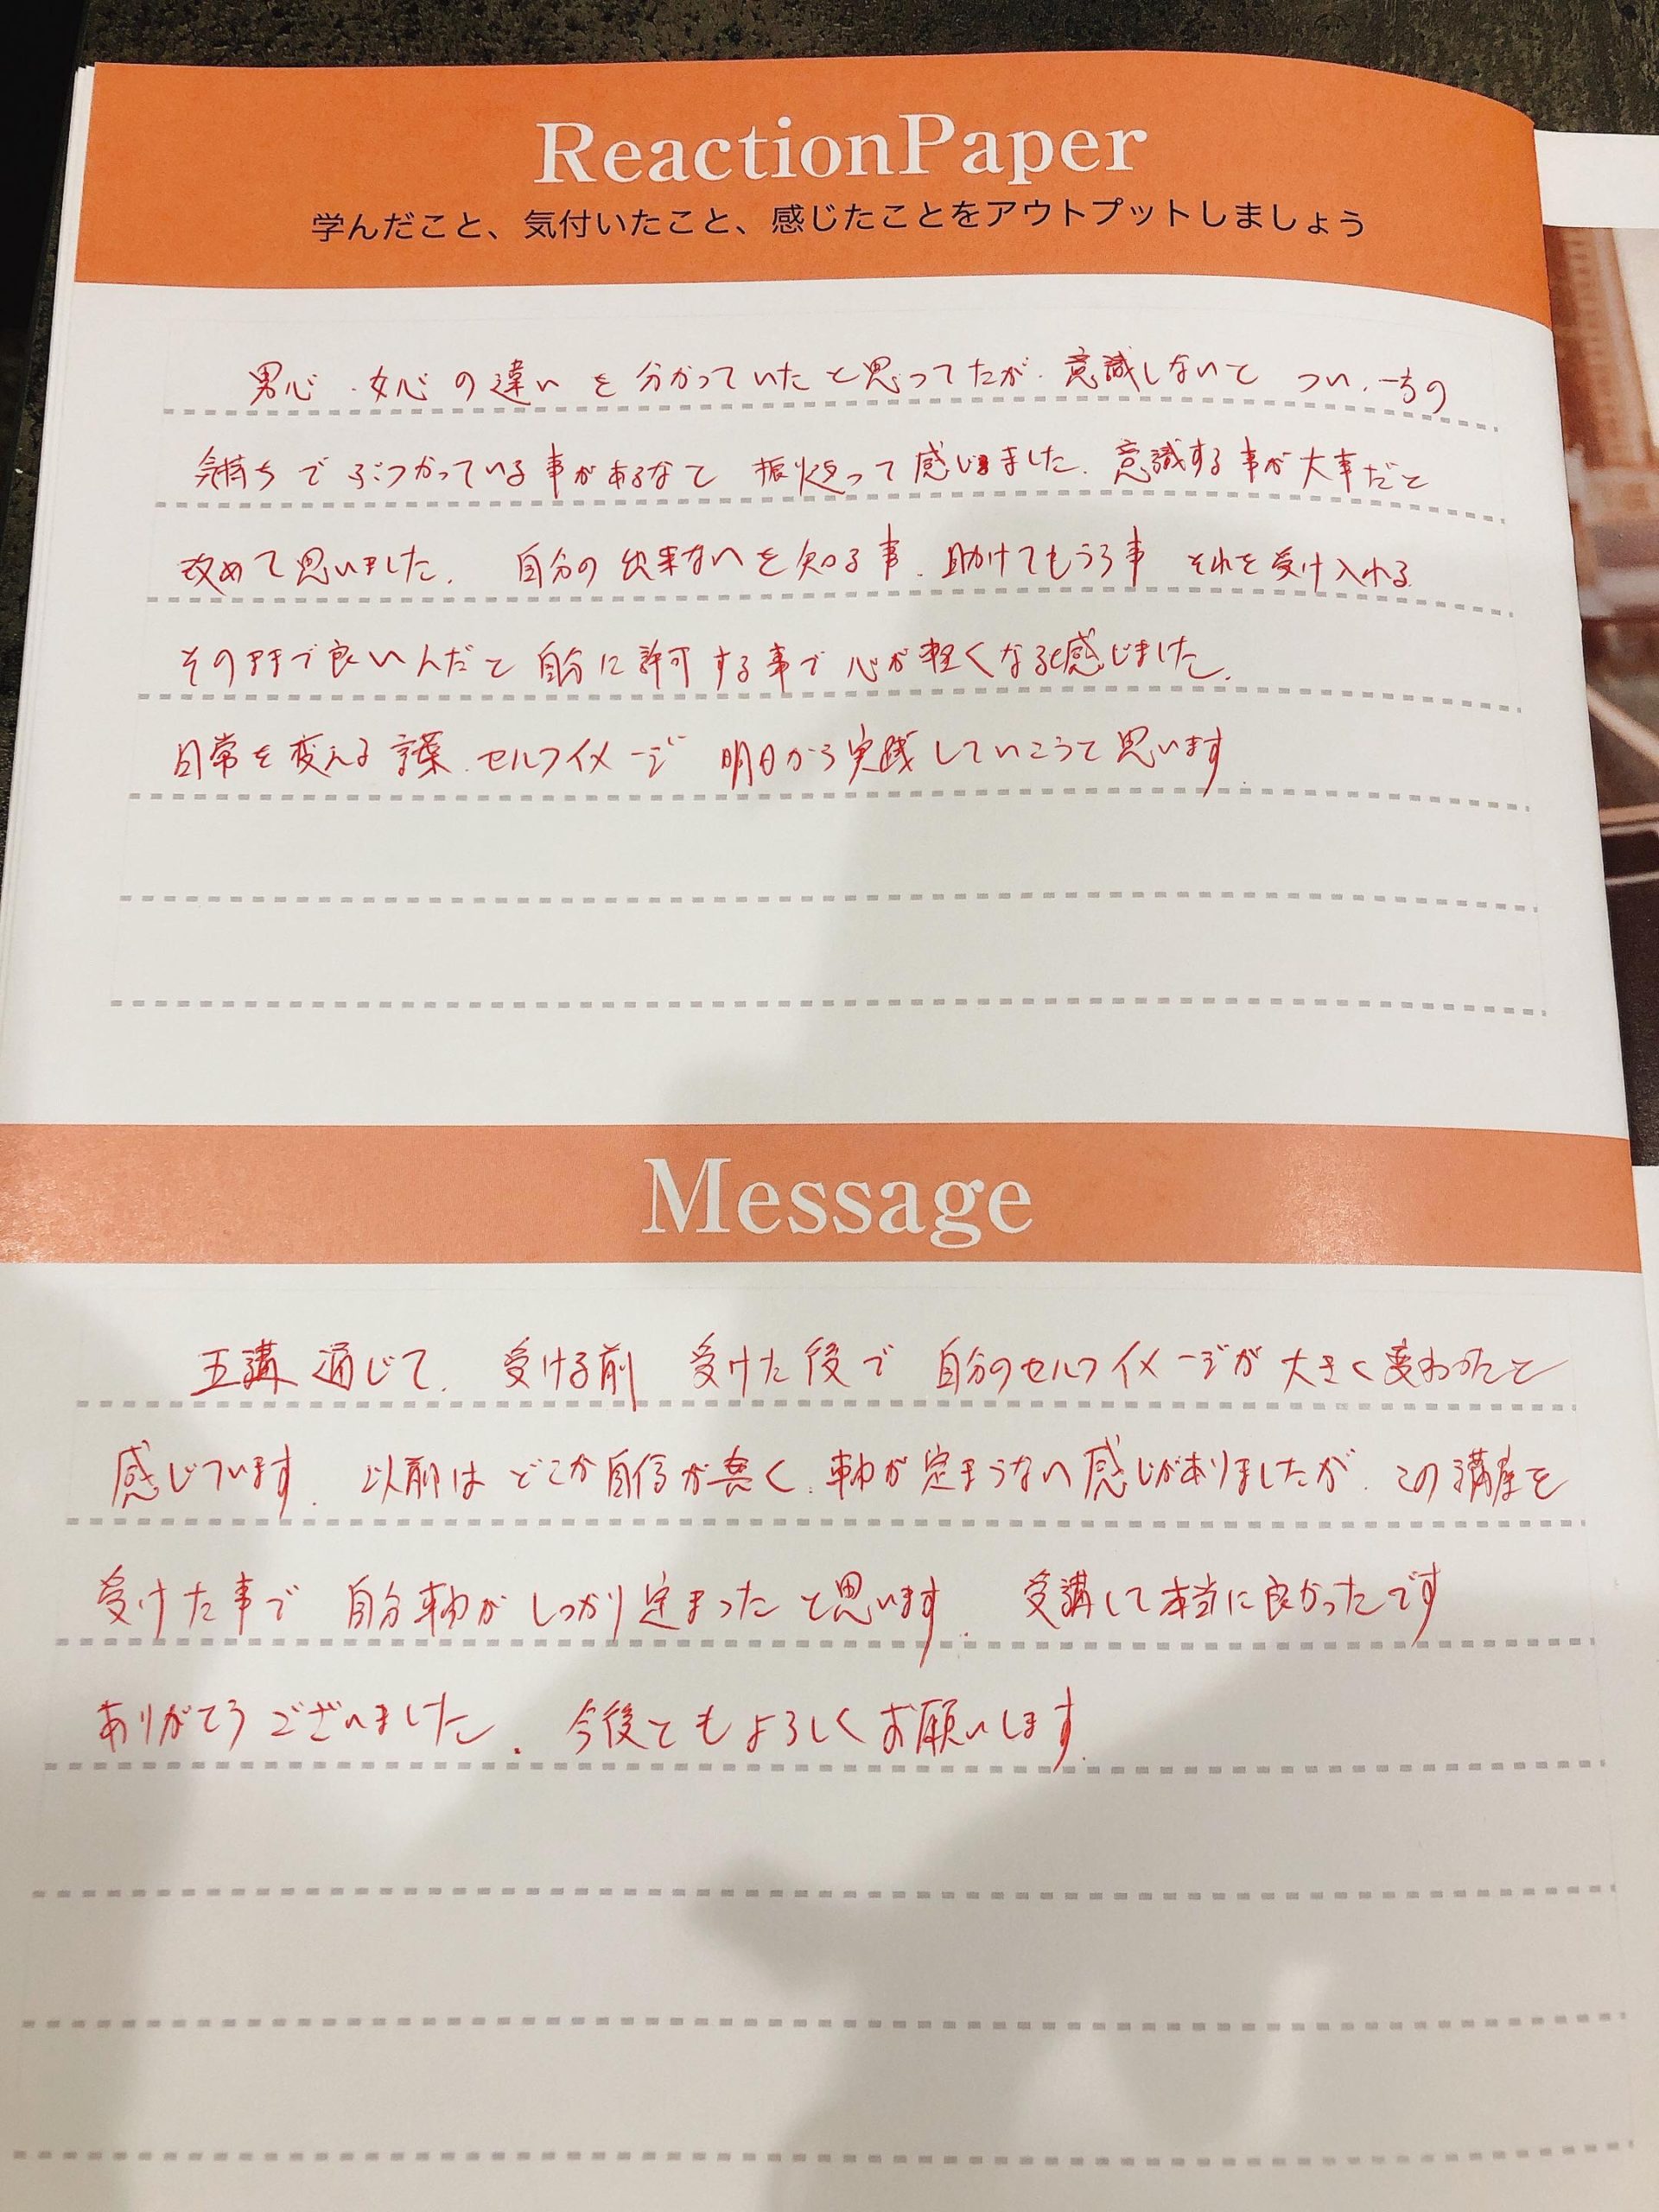 ReactionPaper
学んだこと、気付いたこと、感じたことをアウトプットしましょう
男心、女心の違いを分かっていたと思ってたが、意識しないと つい、一方の
気持ちでぶつかっている事があるなと 振り返って感じました。意識する事が大事だと
改めて思いました。 自分の出来ないを知る事、助けてもらう事 それを受け入れる。
そのままで良いんだと自分に許可する事で心が軽くなると感じました。
日常を変える言葉、セルフイメージ 明日から実践していこうと思います。
Message
五講通じて、 受ける前 受けた後で 自分のセルフイメージが大きく変わったと
感じています。 以前はどこか自信が無く、軸が定まらない感じがありましたが、この講座を
受けた事で 自分軸がしっかり定まったと思います。 受講して本当に良かったです
ありがとうございました。 今後ともよろしくお願いします。